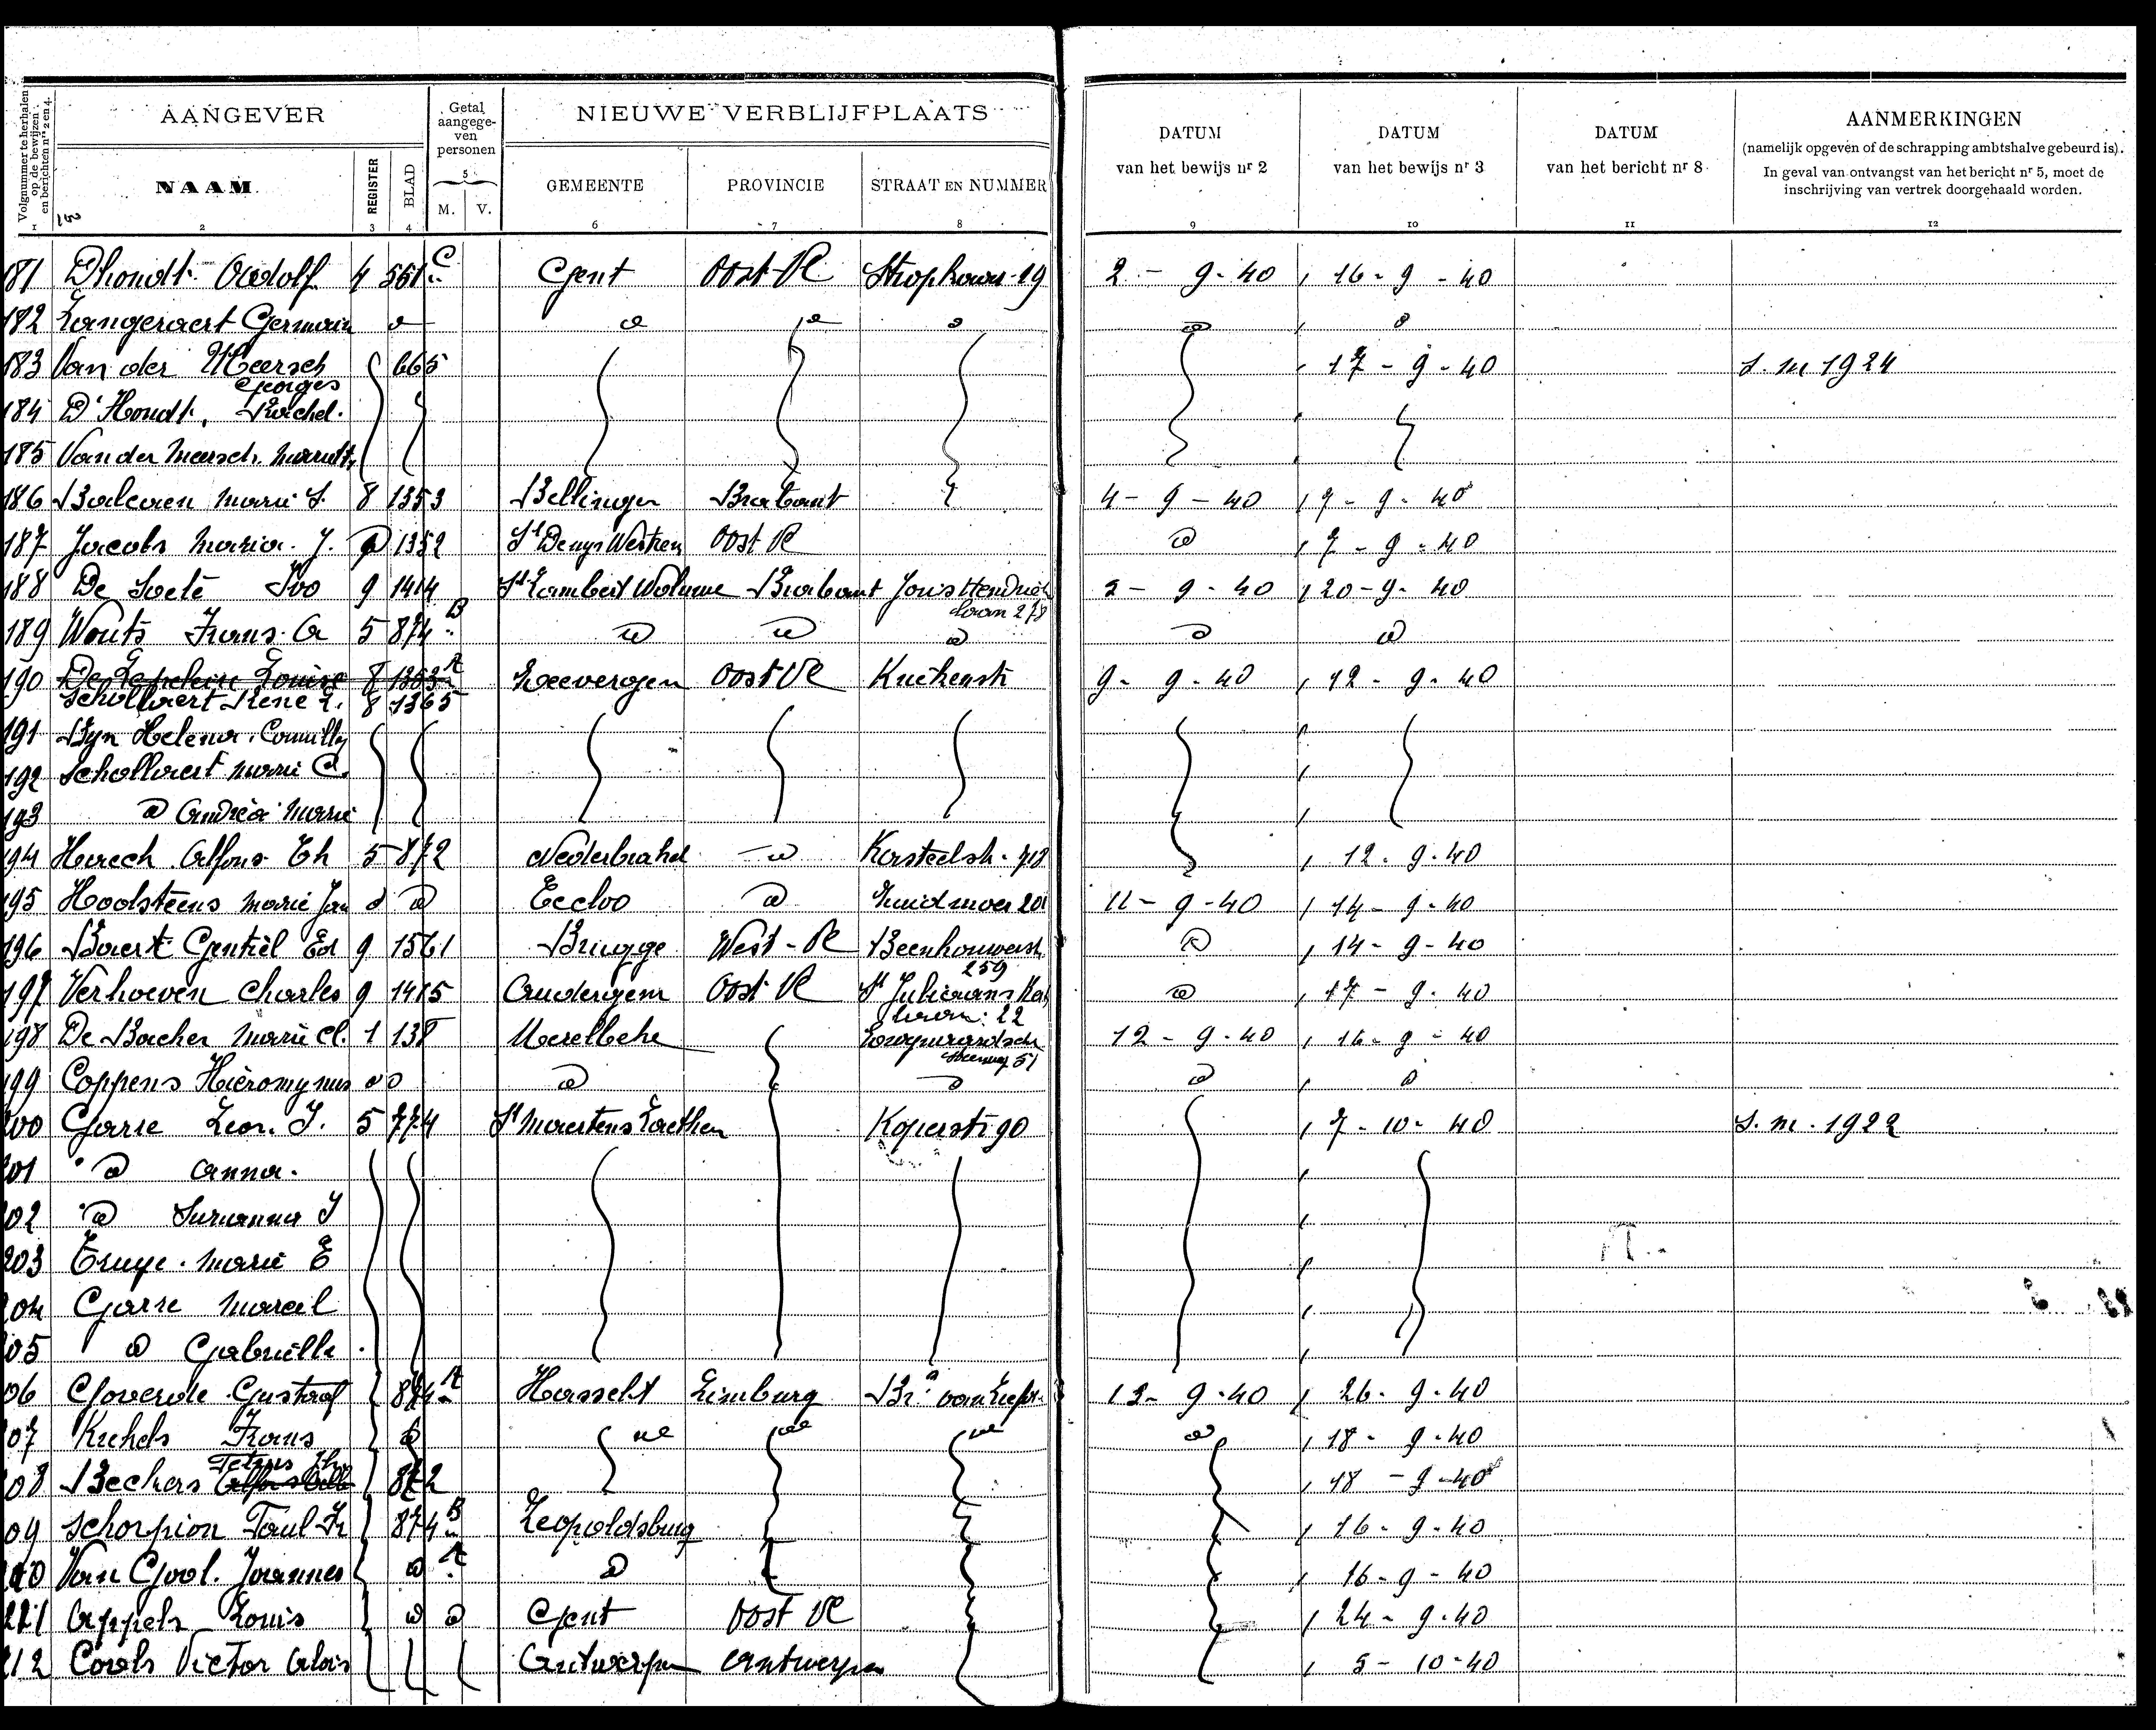 AANGEVER
Getal aangegeven personen
NIEUWE VERBLIJFPLAATS
Volgnummer te herhalen op de bewijzen en berichten nrs 2 en 4.
NAAM
REGISTER
BLAD
5
M. V.
GEMEENTE
PROVINCIE
STRAAT EN NUMMER
DATUM van het bewijs nr 2
DATUM van het bewijs nr 3
DATUM van het bericht nr 8
AANMERKINGEN
(namelijk opgeven of de schrapping ambtshalve gebeurd is).
In geval van ontvangst van het bericht nr 5, moet de
inschrijving van vertrek doorgehaald worden.
1 2 3 4 6 7 8 9 10 11 12
181 Dhondt Adolf 4 561 C Gent Oost Vl 19 2 - 9 - 40 16 - 9 - 40
182 Langeraert Germain
183 Van der Meersch Georges 665 17 - 9 - 40 S. m 1924
184 D'Hondt, Rachel.
185 Van der Meersch
186 Marie S. 8 1353 Bellingen Brabant 4 - 9 - 40 7 - 9 - 40
187 Jacobs Maria J. 1352 St Denys Westrem Oost Vl 7 - 9 - 40
188 De Soete Ivo 9 1414 St Lambert Woluwe Brabant Joris Hendrick laan 278 2 - 9 - 40 20 - 9 - 40
189 Wouts Frans A 5 874 B
190 De Louise 8 1363 A Loevergem Oost Vl 9 - 9 - 40 12 - 9 - 40
Schollaert René L. 8 1365
191 Byn Helena Camilla
192 Schollaert Marie C.
193 Andréa Marie
194 Alfons Th 5 872 Nederbrakel Kasteelstr 718 12 - 9 - 40
195 Hoolsteens Marie Jan Eecloo Zuidmoer 201 11 - 9 - 40 14 - 9 - 40
196 Baert Gentiel Ed 9 1561 Brugge West - Vl Beenhouwerstr 259 14 - 9 - 40
197 Verhoeven Charles 9 1415 Auderghem Oost Vl St Juliaans laan 22 17 - 9 - 40
198 De Backer Marie Cl. 1 138 Merelbeke 51 12 - 9 - 40 16 - 9 - 40
199 Coppens Hieromymus
200 Garre Leon J. 5 774 St Maertens Laethem Koperstr 90 7 - 10 - 40 S. m. 1922
201 Anna
202 Suzanna J
203 Truye Marie E
204 Garre Marcel
205 Gabrielle
206 Goverde Gustaaf 874 A Hasselt Limburg 13 - 9 - 40 26 - 9 - 40
207 Krekels Frans 18 - 9 - 40
208 Beckers Petrus 872 18 - 9 - 40
209 Schorpion Paul Fr 874 B Leopoldsburg 16 - 9 - 40
210 Van Gool Joannes A 16 - 9 - 40
211 Appels Louis Gent Oost Vl 24 - 9 - 40
212 Cools Victor Alois Antwerpen Antwerpen 5 - 10 - 40